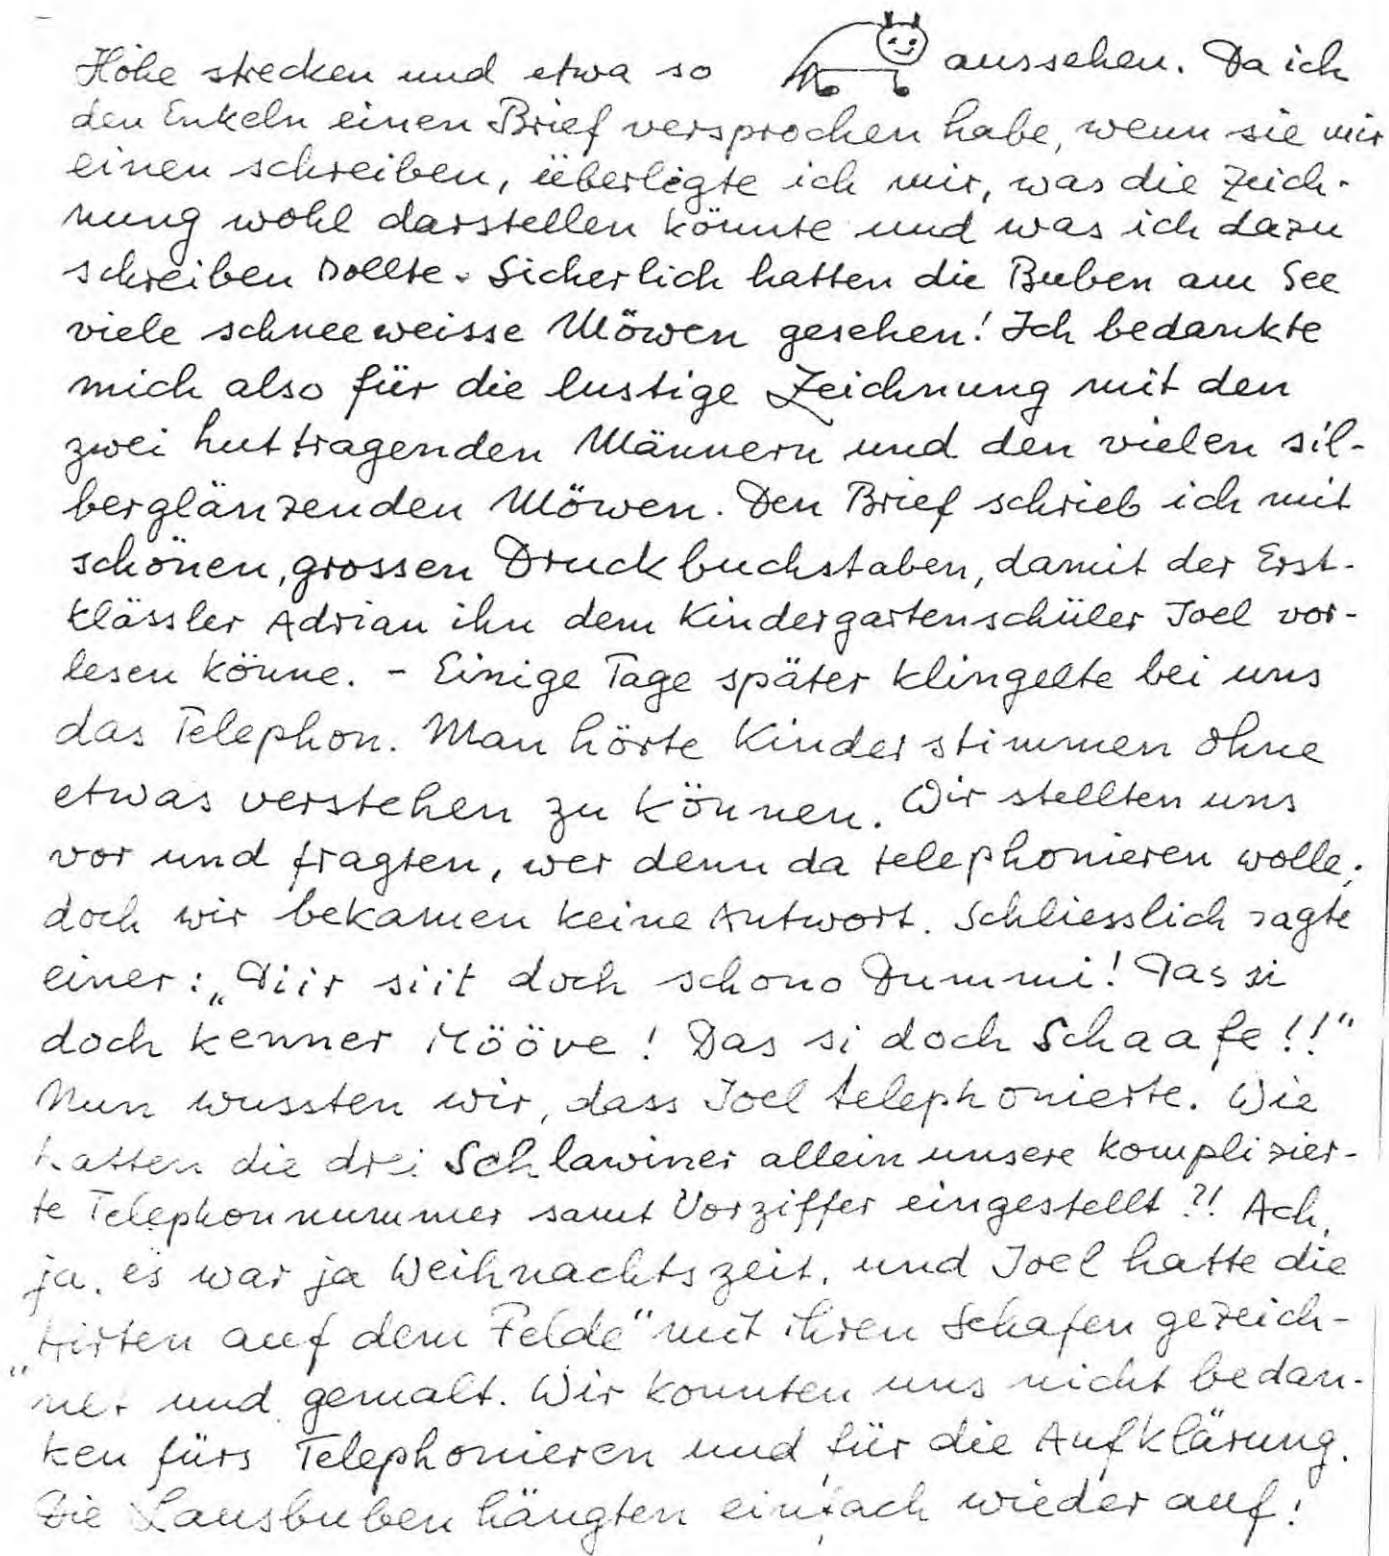 Höhe strecken und etwa so aussehen. Da ich
den Enkeln einen Brief versprochen habe, wenn sie mir
einen schreiben, überlegte ich mir, was die Zeich-
nung wohl darstellen könnte und was ich dazu
schreiben sollte. Sicherlich hatten die Buben am See
viele schneeweisse Möwen gesehen! Ich bedankte
mich also für die lustige Zeichnung mit den
zwei huttragenden Männern und den vielen sil-
berglänzenden Möwen. Den Brief schrieb ich mit
schönen, grossen Druckbuchstaben, damit der Erst-
klässler Adrian ihn dem Kindergartenschüler Joel vor-
lesen könne. - Einige Tage später klingelte bei uns
das Telephon. Man hörte Kinderstimmen ohne
etwas verstehen zu können. Wir stellten uns
vor und fragten, wer denn da telephonieren wolle;
doch wir bekamen keine Antwort. Schliesslich sagte
einer: „Diir siit doch schono Dummi! Das si
doch kenner Mööve! Das si doch Schaafe!!"
Nun wussten wir, dass Joel telephonierte. Wie
hatten die drei Schlawiner allein unsere komplizier-
te Telephonnummer samt Vorziffer eingestellt?! Ach,
ja, es war ja Weihnachtszeit, und Joel hatte die
„Hirten auf dem Felde" mit ihren Schafen gezeich-
net und gemalt. Wir konnten uns nicht bedan-
ken fürs Telephonieren und für die Aufklärung.
Die Lausbuben hängten einfach wieder auf!